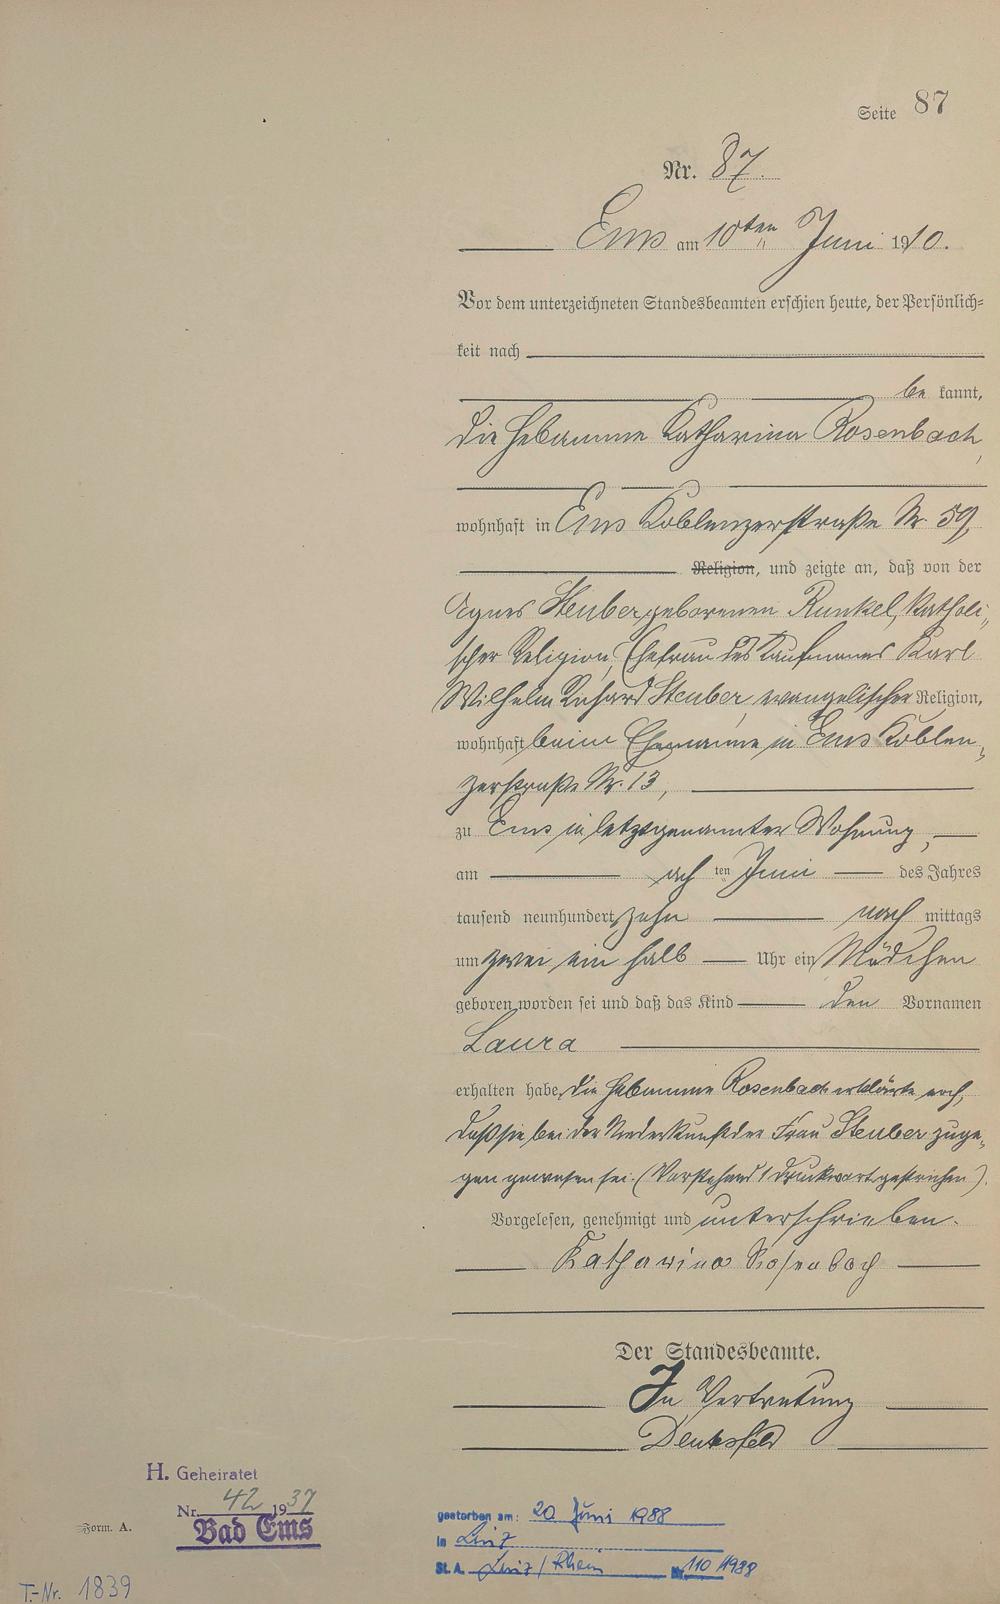 Seite 87
Nr. 87.
Ems am 10ten Juni 1910.
Vor dem unterzeichneten Standesbeamten erschien heute, der Persönlich-
keit nach
be kannt,
die Hebamme Katharina Rosenbach,
wohnhaft in Ems Koblenzerstraße Nr 59,
Religion, und zeigte an, daß von der
Agnes Steuber, geborenen Runkel, katholi-
scher Religion, Ehefrau des Kaufmannes Karl
Wilhelm Richard Steuber, evangelischer Religion,
wohnhaft beim Ehemanne in Ems Koblen-
zerstraße Nr. 13,
zu Ems in letztgenannter Wohnung,
am ach ten Juni des Jahres
tausend neunhundert zehn nach mittags
um zwei ein halb Uhr ein Mädchen
geboren worden sei und daß das Kind den Vornamen
Laura
erhalten habe. Die Hebamme Rosenbach erklärte noch,
daß sie bei der Niederkunft der Frau Steuber zuge-
gen gewesen sei. (Vorstehend 1 Druckwort gestrichen).
Vorgelesen, genehmigt und unterschrieben.
Katharina Rosenbach
Der Standesbeamte.
In Vertretung
H. Geheiratet
Nr. 42 1937
Bad Ems
Form. A.
T.-Nr. 1839
gestorben am: 20 Juni 1988
in Linz
St. A. Linz / Rhein Nr. 110 / 1988